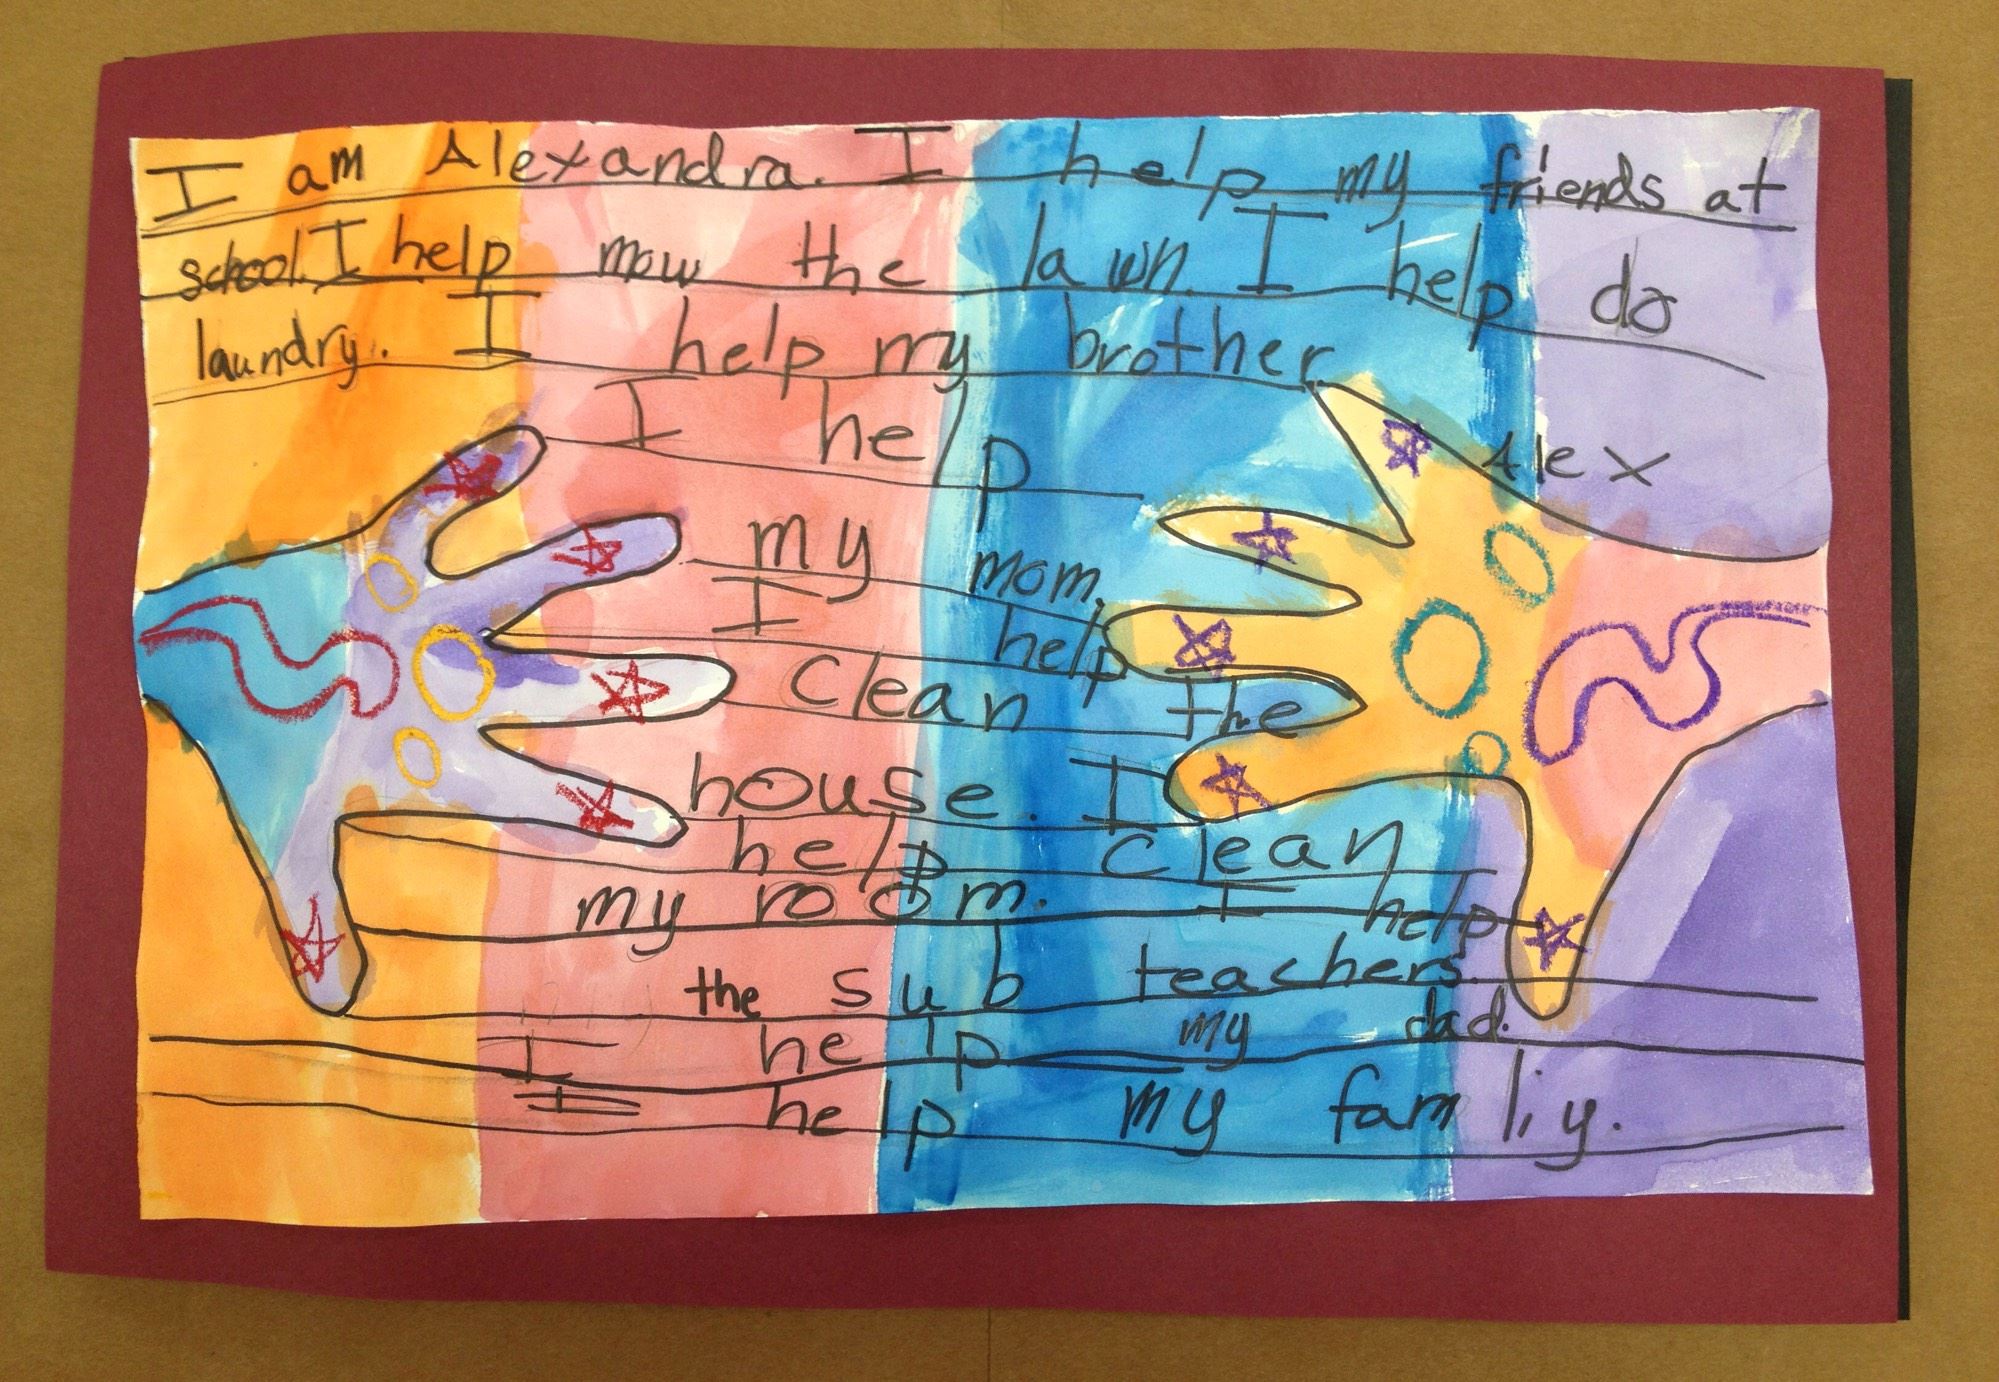 I am Alexandra. I help my friends at
school. I help mow the lawn. I help do
laundry. I help my brother
Alex
I help
my mom.
I help
clean the
house. I
help clean
my room. I help
the sub teachers.
I help my dad.
I help my famliy.